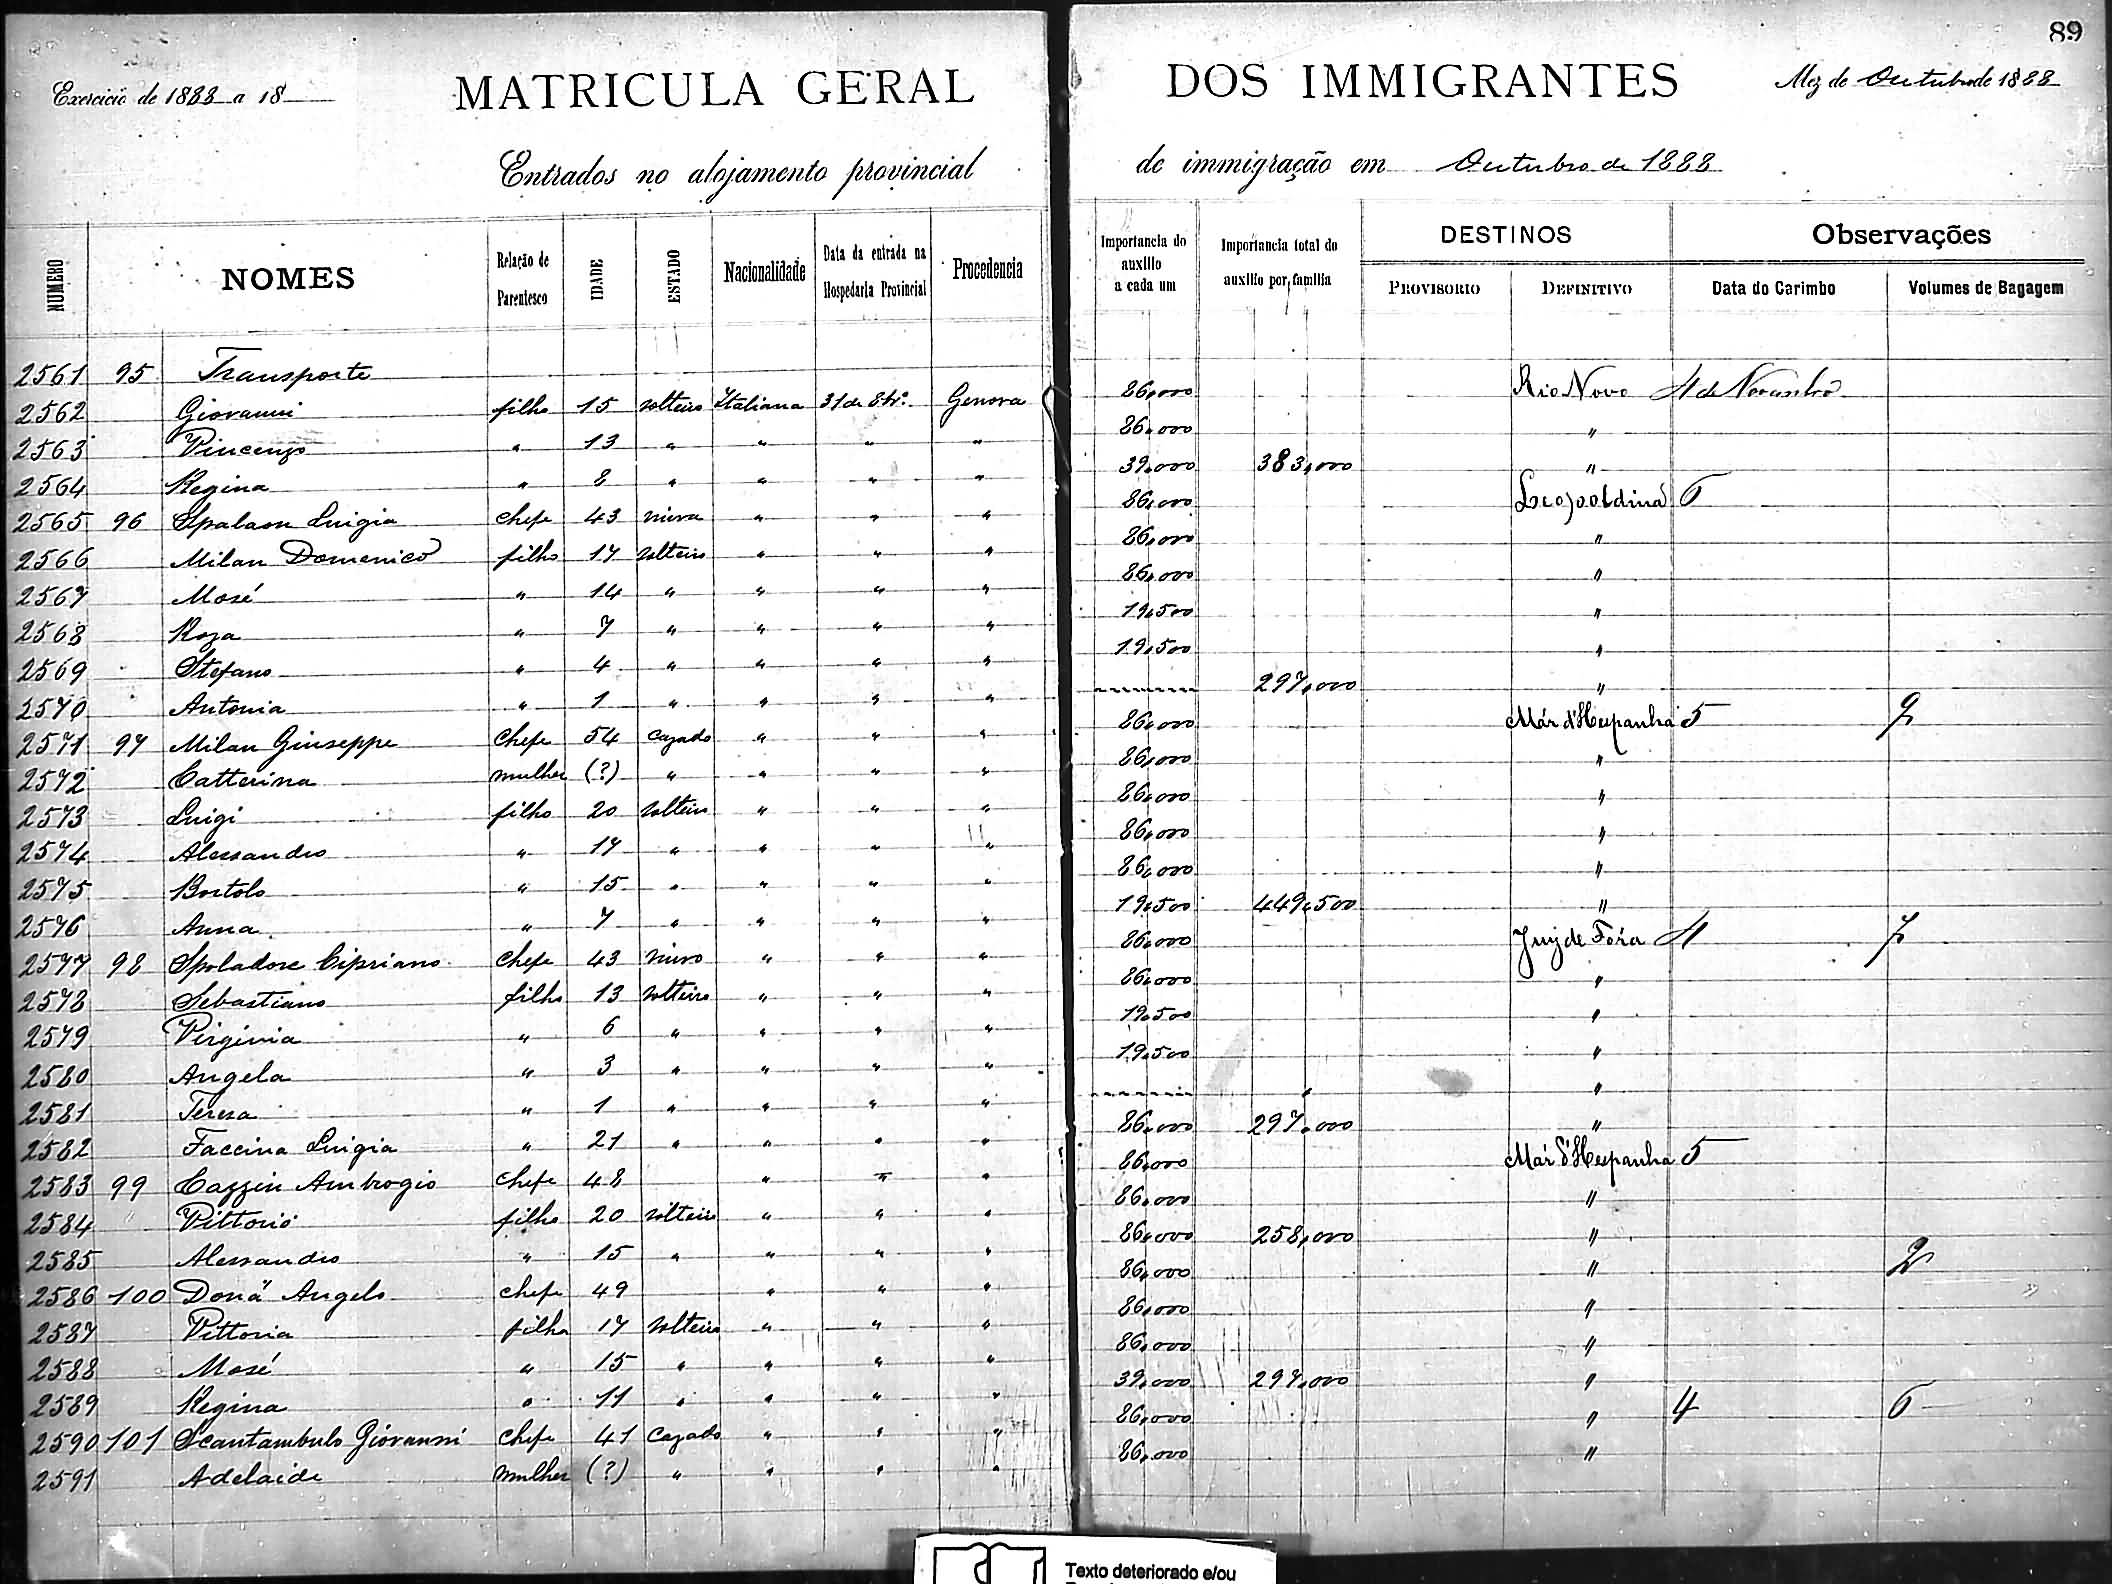 89
Exercicio de 1888 a 18
MATRICULA GERAL DOS IMMIGRANTES
Mez de Outubro de 1888
Entrados no alojamento provincial de immigração em Outubro de 1888
NUMERO NOMES Relação de Parentesco IDADE ESTADO Nacionalidade Data da entrada na Hospedaria Provincial Procedencia Importancia do auxilio a cada um Importancia total do auxilio por familia DESTINOS PROVISORIO DEFINITIVO Observações Data do Carimbo Volumes de Bagagem
2561 95 Transporte
2562 Giovanni filho 15 solteiro Italiana 31 de 8br.o Genova 86,000 Rio Novo 4 de Novembro
2563 Vincenzo " 13 " " " " 86,000 "
2564 Regina " 8 " " " " 39,000 383,000 "
2565 96 Spalaon Luigia chefe 43 viuva " " " 86,000 Leopoldina 6
2566 Milan Domenico filho 17 solteiro " " " 86,000 "
2567 Mosé " 14 " " " " 86,000 "
2568 Roza " 7 " " " " 19,500 "
2569 Stefano " 4 " " " " 19,500 "
2570 Antonia " 1 " " " " 297,000 "
2571 97 Milan Giuseppe chefe 54 cazado " " " 86,000 Már d'Hespanha 5 9
2572 Catterina mulher (?) " " " " 86,000 "
2573 Luigi filho 20 solteiro " " " 86,000 "
2574 Alessandro " 17 " " " " 86,000 "
2575 Bortolo " 15 " " " " 86,000 "
2576 Anna " 7 " " " " 19,500 449,500 "
2577 98 Spoladore Cipriano chefe 43 viuvo " " " 86,000 Juiz de Fóra 4 7
2578 Sebastiano filho 13 solteiro " " " 86,000 "
2579 Virginia " 6 " " " " 19,500 "
2580 Angela " 3 " " " " 19,500 "
2581 Teresa " 1 " " " " "
2582 Faccina Luigia " 21 " " " " 86,000 297,000 "
2583 99 Cazzin Ambrogio chefe 48 " " " 86,000 Már d'Hespanha 5
2584 Vittorio filho 20 solteiro " " " 86,000 "
2585 Alessandro " 15 " " " " 86,000 258,000 "
2586 100 Doná Angelo chefe 49 " " " 86,000 " 2
2587 Vittoria filha 17 solteiro " " " 86,000 "
2588 Mosé " 15 " " " " 86,000 "
2589 Regina " 11 " " " " 39,000 297,000 "
2590 101 Scantambulo Giovanni chefe 41 cazado " " " 86,000 " 4 6
2591 Adelaide mulher (?) " " " " 86,000 "
Texto deteriorado e/ou